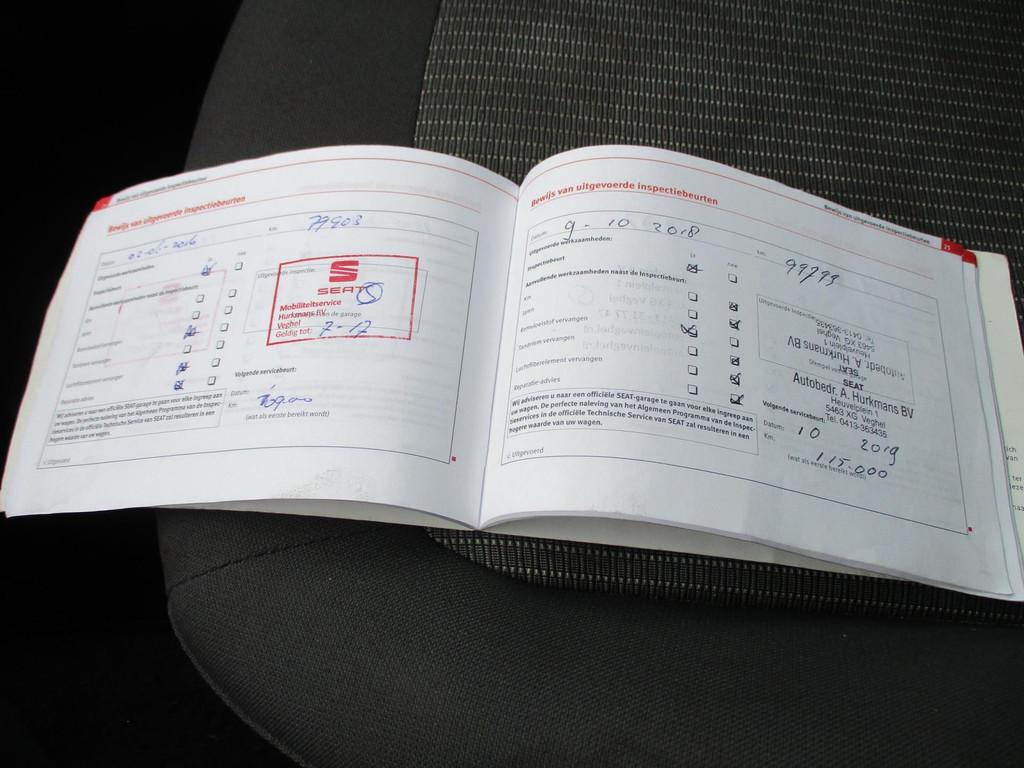 Bewijs van uitgevoerde inspectiebeurten
Bewijs van uitgevoerde inspectiebeurten
Datum:
Km:
79903
Uitgevoerde werkzaamheden:
Ja
nee
Inspectiebeurt
Aanvullende werkzaamheden naast de Inspectiebeurt:
Km
Remvloeistof vervangen
Tandriem vervangen
Luchtfilterelement vervangen
Reparatie-advies
Wij adviseren u naar een officiële SEAT-garage te gaan voor elke ingreep aan
uw wagen. De perfecte naleving van het Algemeen Programma van de Inspec-
tieservices in de officiële Technische Service van SEAT zal resulteren in een
hogere waarde van uw wagen.
√: Uitgevoerd
Uitgevoerde inspectie:
SEAT
Mobiliteitservice
Hurkmans BV
Veghel
Geldig tot: 7-17
Volgende servicebeurt:
Datum:
Km:
(wat als eerste bereikt wordt)
Bewijs van uitgevoerde inspectiebeurten
21
Bewijs van uitgevoerde inspectiebeurten
Datum: 9 - 10 2018
Km: 99793
Uitgevoerde werkzaamheden:
Ja
nee
Inspectiebeurt
Aanvullende werkzaamheden naast de Inspectiebeurt:
Km
Remvloeistof vervangen
Tandriem vervangen
Luchtfilterelement vervangen
Reparatie-advies
Wij adviseren u naar een officiële SEAT-garage te gaan voor elke ingreep aan
uw wagen. De perfecte naleving van het Algemeen Programma van de Inspec-
tieservices in de officiële Technische Service van SEAT zal resulteren in een
hogere waarde van uw wagen.
√: Uitgevoerd
Uitgevoerde inspectie:
Tel. 0413-363435
5463 XG Veghel
Heuvelplein 1
Autobedr. A. Hurkmans BV
SEAT
SEAT
Autobedr. A. Hurkmans BV
Heuvelplein 1
5463 XG Veghel
Tel. 0413-363435
Volgende servicebeurt:
Datum: 10 2019
Km: 115.000
(wat als eerste bereikt wordt)